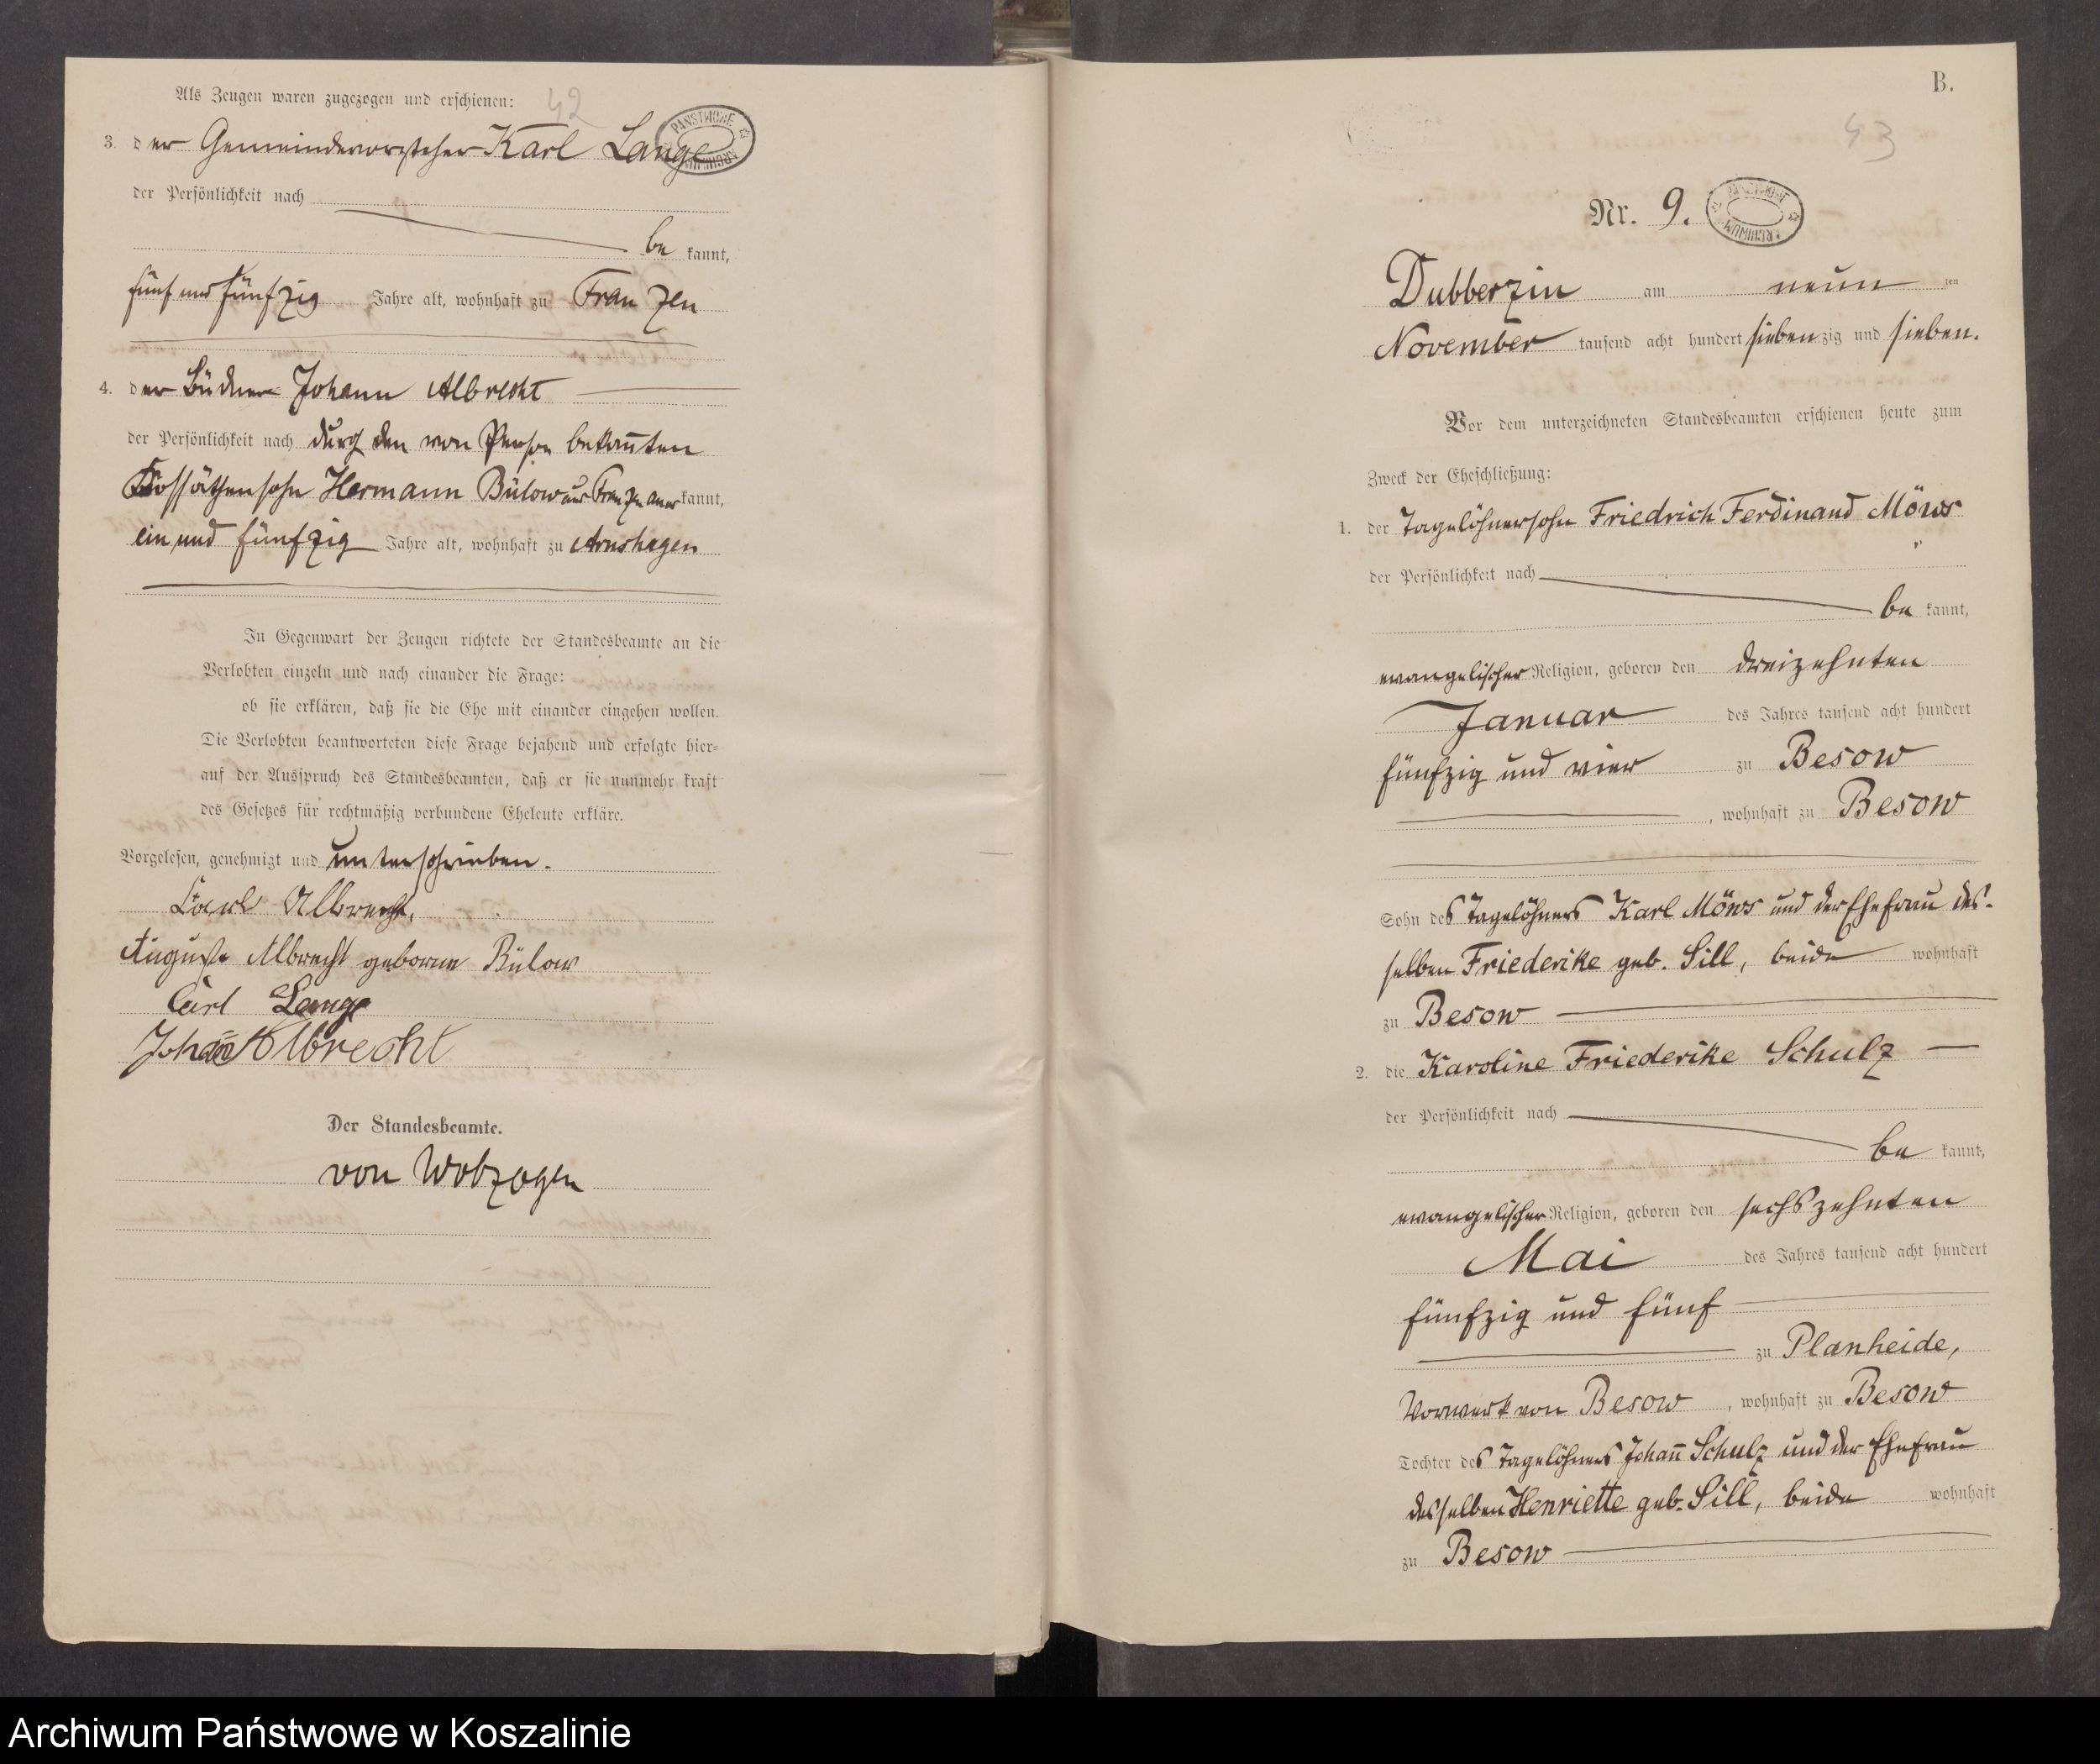 42
Als Zeugen waren zugezogen und erschienen:
3. der Gemeindevorsteher Karl Lange
der Persönlichkeit nach
bekannt,
fünf und fünfzig Jahre alt, wohnhaft zu Franzen
4. der Büdner Johann Albrecht
der Persönlichkeit nach durch den von Person bekañten
Kossäthensohn Hermann Bülow aus Franzen anerkannt,
ein und fünfzig Jahre alt, wohnhaft zu Arnshagen
In Gegenwart der Zeugen richtete der Standesbeamte an die
Verlobten einzeln und nach einander die Frage:
ob sie erklären, daß sie die Ehe mit einander eingehen wollen.
Die Verlobten beantworteten diese Frage bejahend und erfolgte hier-
auf der Ausspruch des Standesbeamten, daß er sie nunmehr kraft
des Gesetzes für rechtmäßig verbundene Eheleute erkläre.
Vorgelesen, genehmigt und unterschrieben.
Carl Albrecht,
Auguste Albrecht geborne Bülow
Carl Lange
Johañ Albrecht
Der Standesbeamte.
von Wolzogen
PAŃSTWOWE ARCHIWUM
B.
43
Nr. 9.
PAŃSTWOWE ARCHIWUM
Dubberzin am neun ten
November tausend acht hundert siebenzig und sieben.
Vor dem unterzeichneten Standesbeamten erschienen heute zum
Zweck der Eheschließung:
1. der Tagelöhnersohn Friedrich Ferdinand Möws
der Persönlichkeit nach
bekannt,
evangelischer Religion, geboren den dreizehnten
Januar des Jahres tausend acht hundert
fünfzig und vier zu Besow
, wohnhaft zu Besow
Sohn des Tagelöhners Karl Möws und der Ehefrau des-
selben Friederike geb. Sill, beide wohnhaft
zu Besow
2. die Karoline Friederike Schulz
der Persönlichkeit nach
bekannt,
evangelischer Religion, geboren den sechszehnten
Mai des Jahres tausend acht hundert
fünfzig und fünf
zu Planheide,
Vorwerk von Besow, wohnhaft zu Besow
Tochter des Tagelöhners Johañ Schulz und der Ehefrau
desselben Henriette geb. Sill, beide wohnhaft
zu Besow
Archiwum Państwowe w Koszalinie